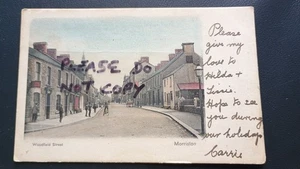 Please
give my
love to
Hilda +
Lissie.
Hope to see
you during
our holidays
Carrie
PLEASE DO
NOT COPY
Woodfield Street
Morriston